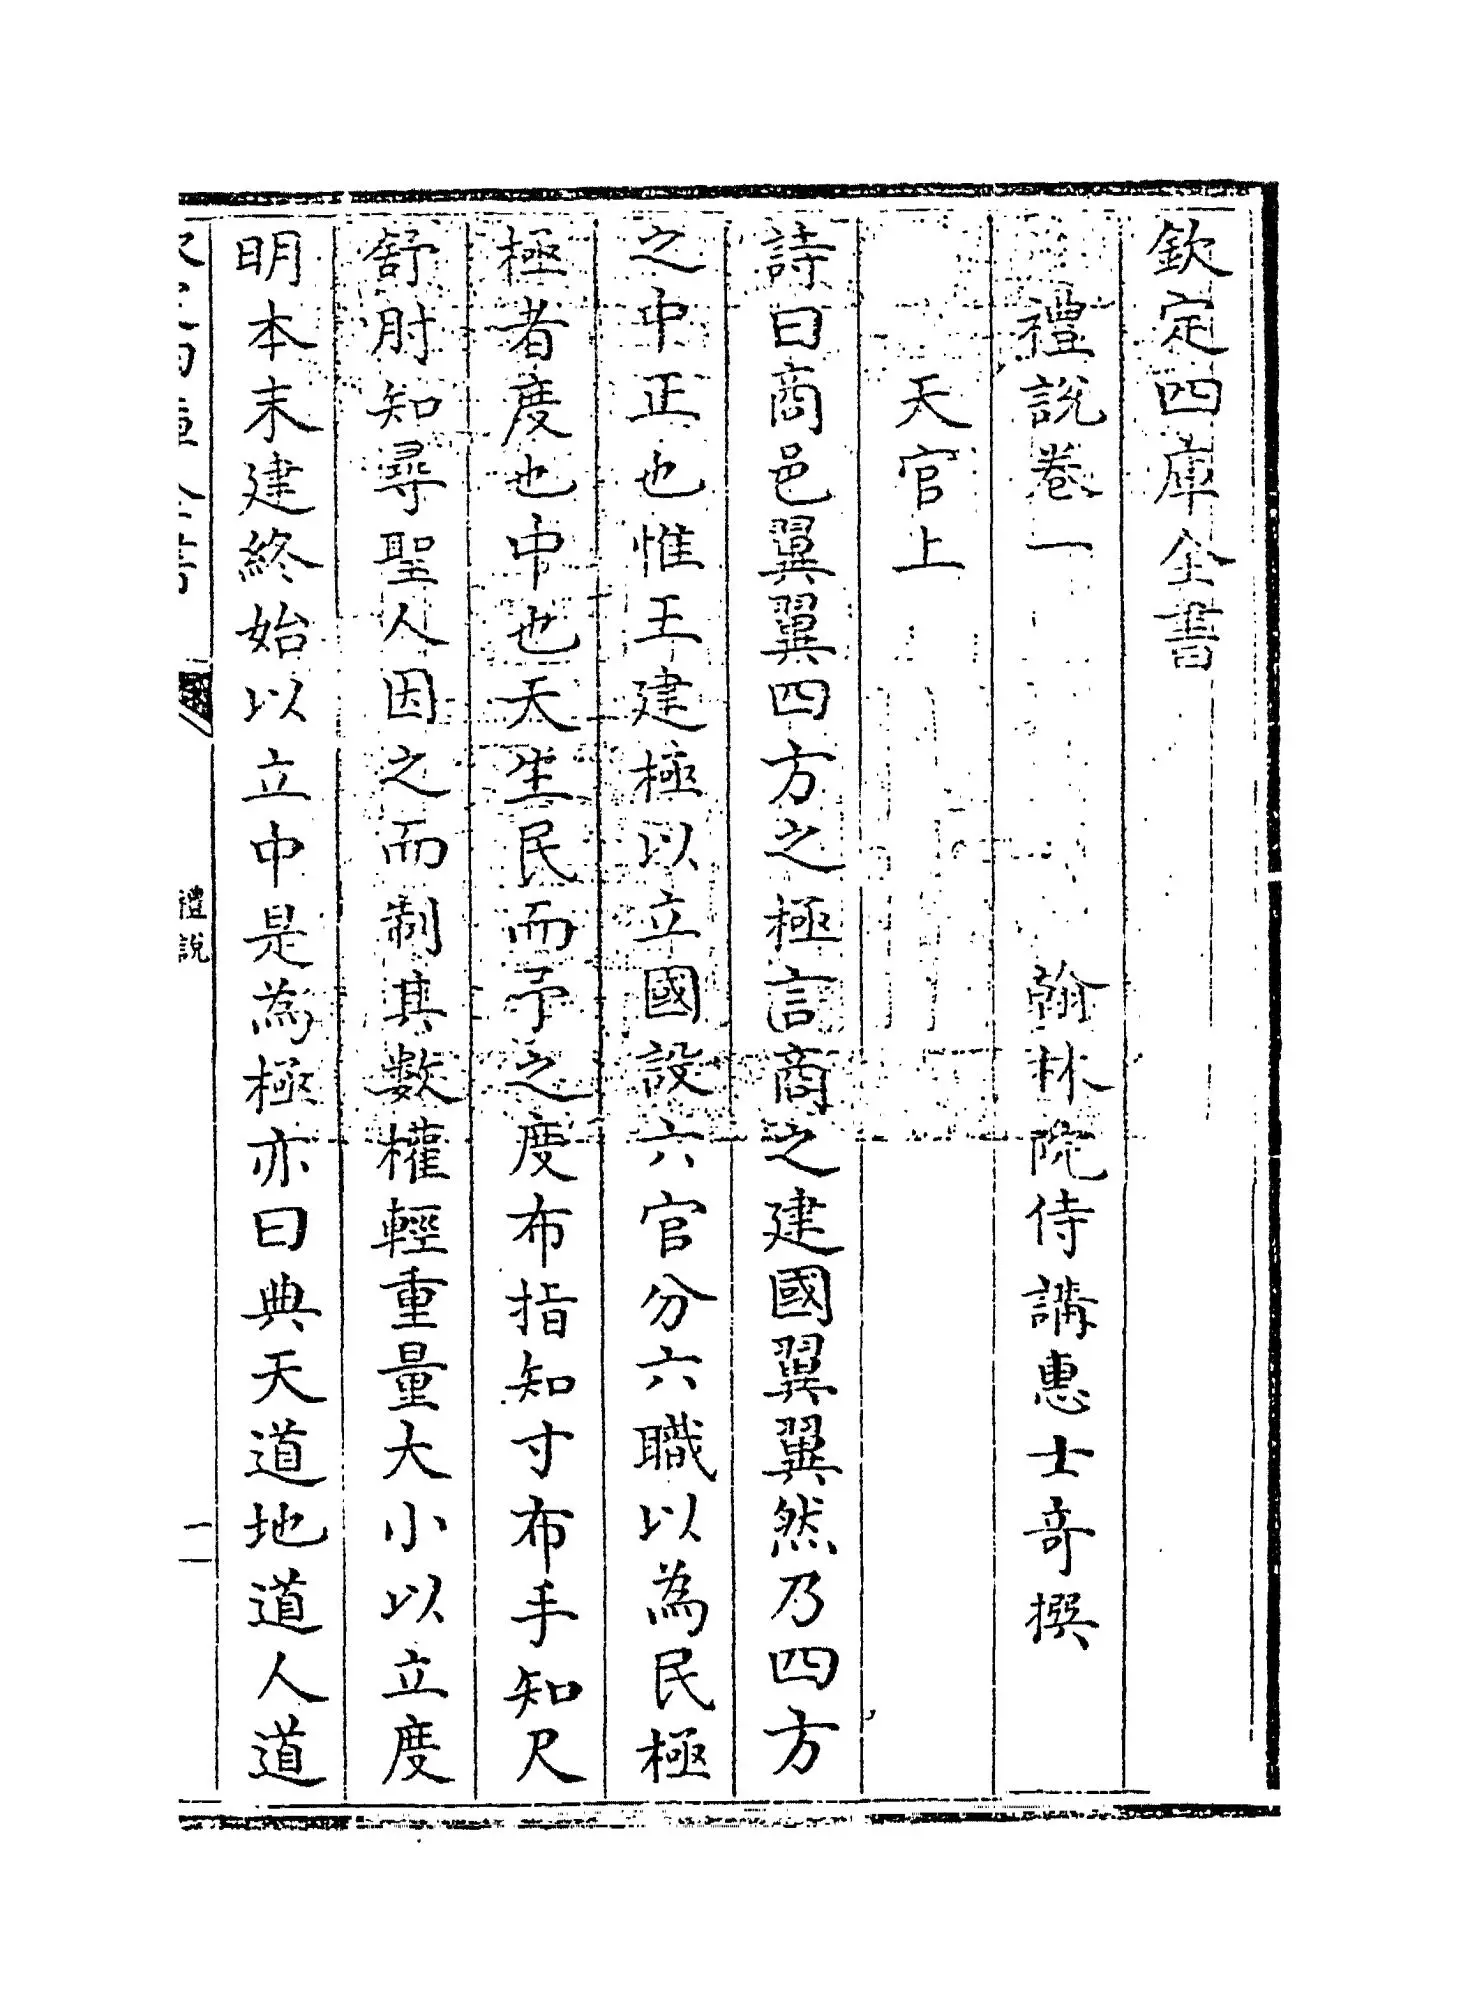 欽定四庫全書
禮說卷一
翰林院侍講惠士奇撰
天官上
詩曰商邑翼翼四方之極言商之建國翼翼然乃四方
之中正也惟王建極以立國設六官分六職以為民極
極者度也中也天生民而予之度布指知寸布手知尺
舒肘知尋聖人因之而制其數權輕重量大小以立度
明本末建終始以立中是為極亦曰典天道地道人道
禮說
一